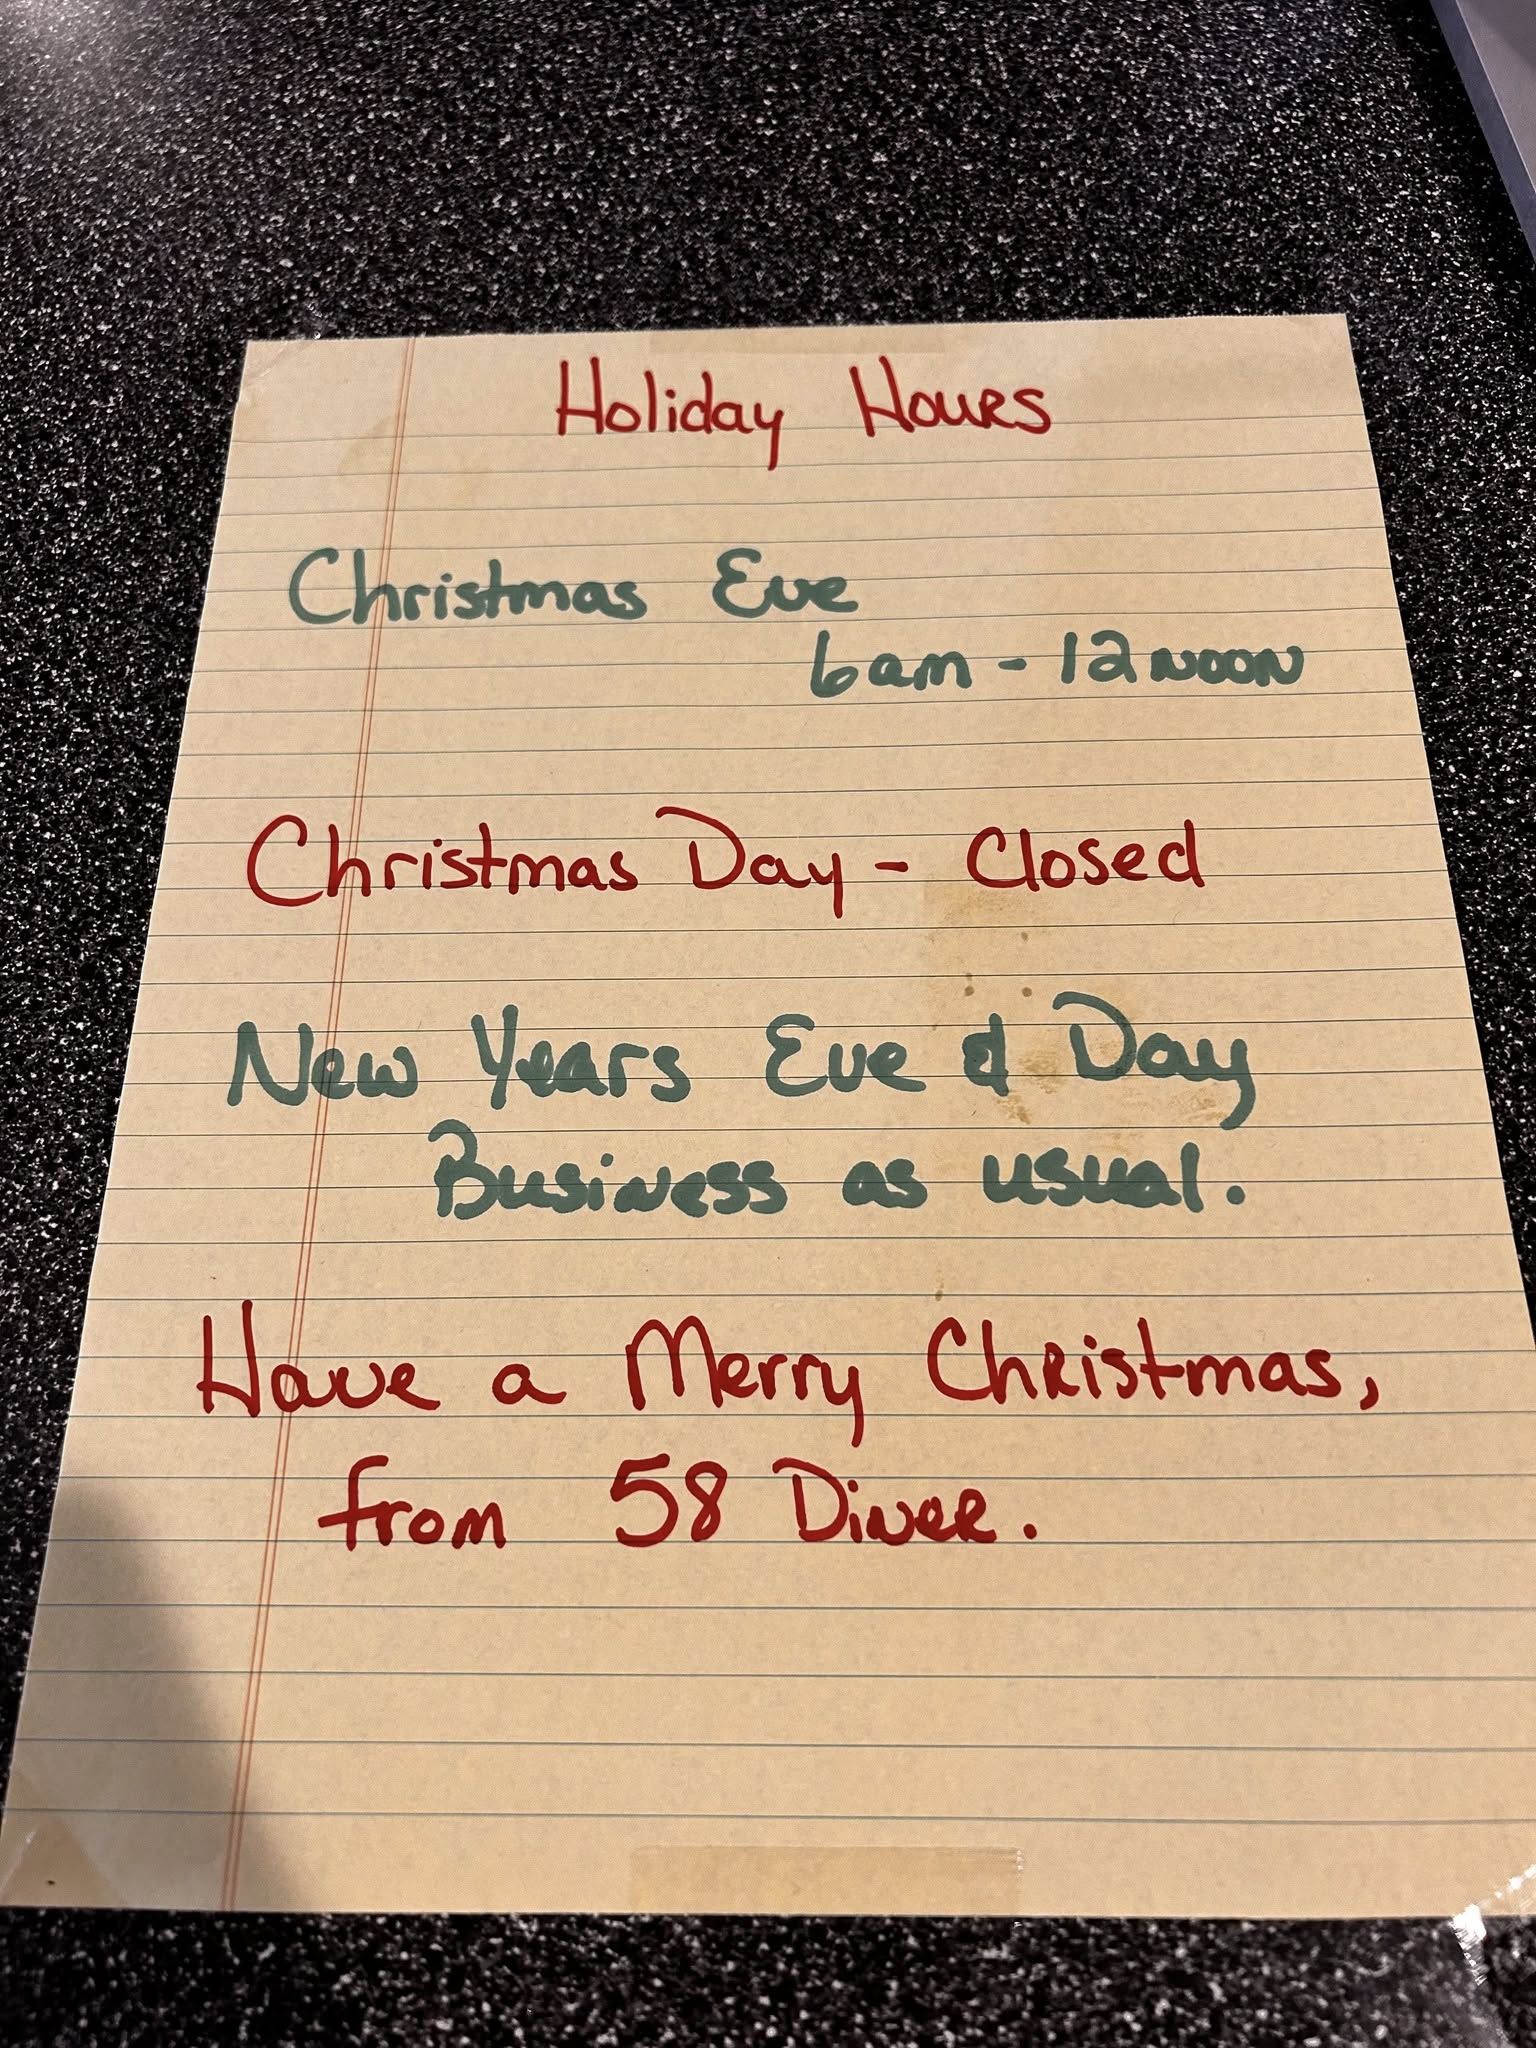 Holiday Hours
Christmas Eve
6am - 12 NOON
Christmas Day - Closed
New Years Eve & Day
Business as usual.
Have a Merry Christmas,
from 58 Diner.